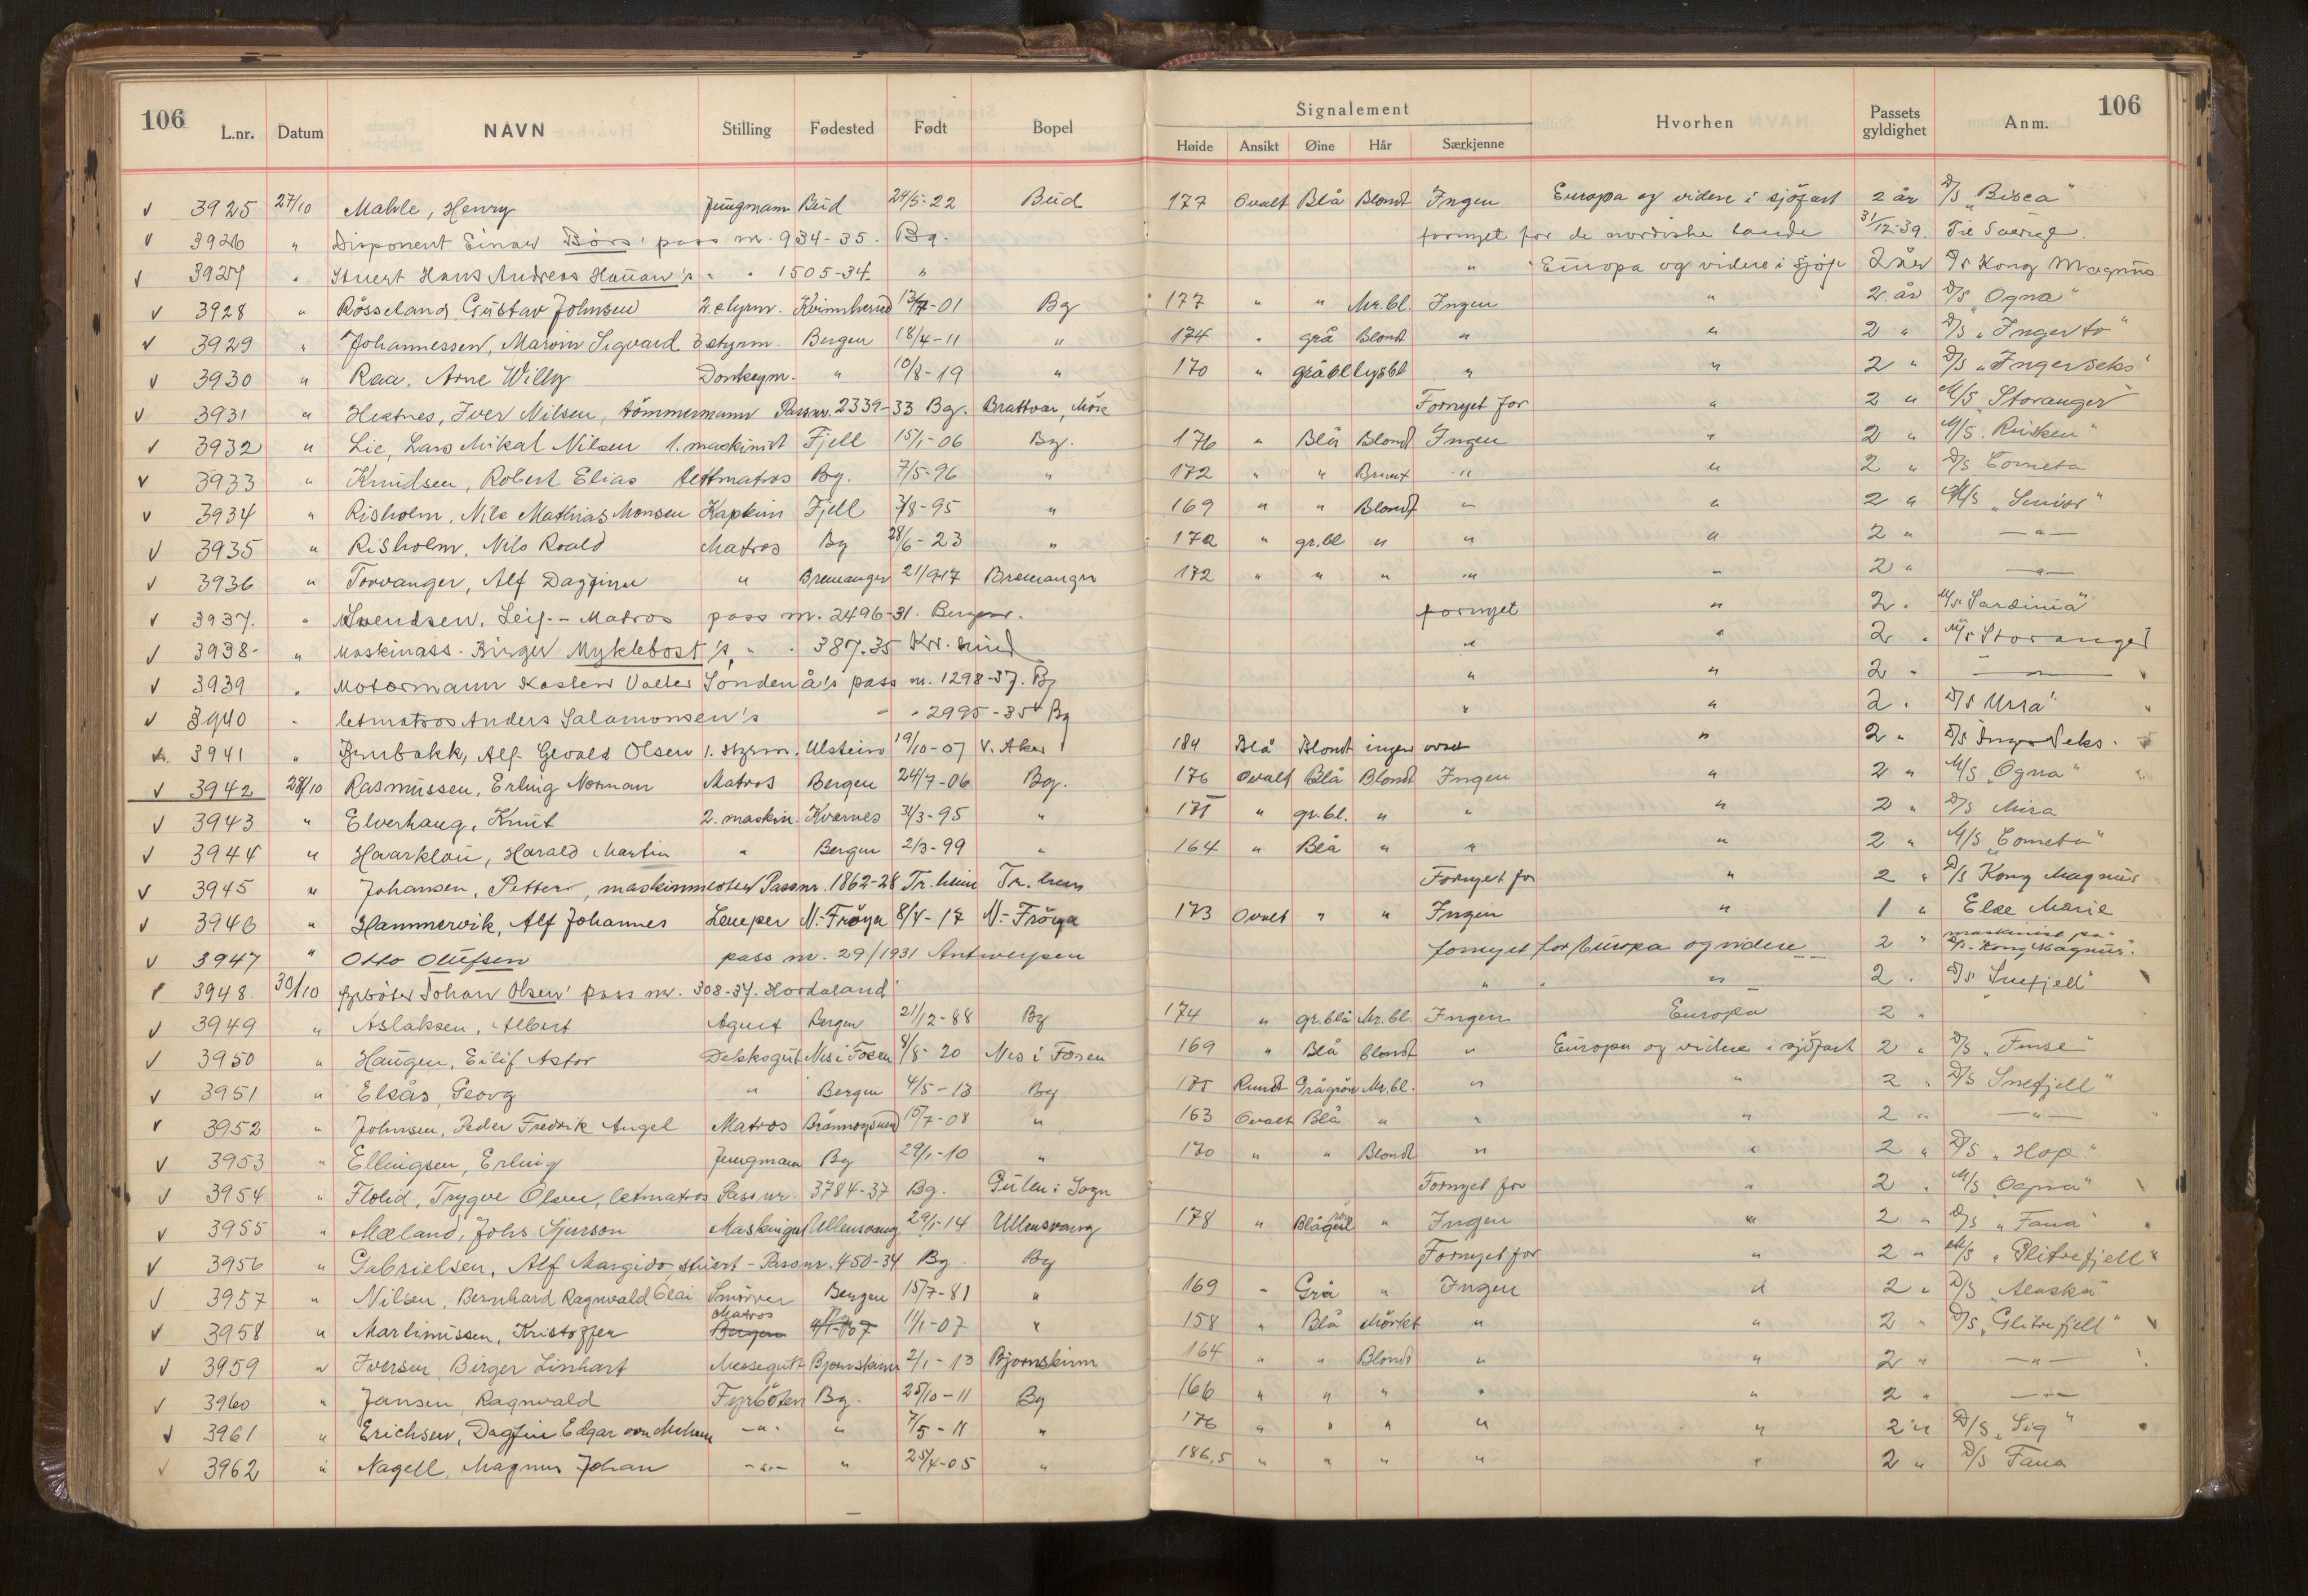 106 106
Signalement
L.nr. Datum NAVN Stilling Fødested Født Bopel Høide Ansikt Øine Hår Særkjenne Hvorhen Passets gyldighet Anm.
v 3925 27/10 Mahle, Henry Jungmann Bud 24/5-22 Bud 177 Ovalt Blå Blond Ingen Europa og videre i sjöfart 2 år D/S „Bisca"
v 3926 " Disponent Einar Börs' pass nr. 934-35. Bg. fornyet for de nordiske lande 31/12-39. Til Sverig.
v 3927 " Stuert Hans Andreas Hauan's " " 1505-34 " " Europa og videre i sjöf 2 år D/s Kong Magnus
v 3928 " Rösseland, Gustav Johnsen 2. styrm. Kvinnherred -01 Bg 177 " " Mr.bl. Ingen " 2 år D/S „Ogna"
v 3929 " Johannessen, Marvin Sigvard 3 styrm. Bergen 18/4-11 " 174 " grå Blond " " 2 " D/S „Ingerto"
v 3930 " Raa, Arne Willy Donkeym. " 10/8-19 " 170 " gråbl lysbl " " 2 " D/S „Ingerseks"
v 3931 " Iver Nilsen, tömmermann Passnr. 2339-33 Bg. Brattvær, Möre Fornyet for " 2 " M/S „Storanger"
v 3932 " Lie, Lars Mikal Nilsen 1. maskinist Fjell 15/1-06 Bg. 176 " Blå Blond Ingen " 2 " M/S
v 3933 " Knudsen, Robert Elias lettmatros Bg. 7/5-96 " 172 " " Brunt " " 2 " D/S Cometa
v 3934 " Risholm, Nils Mathias Monsen Kaptein Fjell 3/8-95 " 169 " " Blond " " 2 " M/S
v 3935 " Risholm, Nils Roald Matros Bg 28/6-23 " 172 " gr.bl " " " 2 " —"—
v 3936 " Torvanger, Alf Dagfinn " Bremanger 21/9-17 Bremanger 172 " " " " " 2 " —"—
v 3937. " Svendsen, Leif. - Matros pass nr. 2496-31. Bergen. fornyet " 2 " M/s „Sardinia"
v 3938- " Maskinass. Birger Myklebost's " " 387.35 Kr. sund " " 2 " M/s Storanger
v 3939 " Motormann Karsten Valter Söndenå's pass nr. 1298-37. Bg " " 2 " —"—
v 3940 " letmatros Anders Salamonsen's " " 2995-35 Bg " " 2 " D/S Ursa"
3941 " Alf Gerald Olsen 1. styrm. Ulstein 19/10-07 V. Aker 184 Blå Blondt ingen " 2 " D/S Inger Seks.
v 3942 28/10 Rasmussen, Erling Norman Matros Bergen 24/7-06 Bg. 176 Ovalt Blå Blondt Ingen " 2 " M/S „Ogna"
v 3943 " Elverhaug, Knut 2. maskin. Kvernes 31/3-95 " 175 " gr.bl. " " " 2 " D/S Mira
v 3944 " Haarklou, Harald Martin " Bergen 2/3-99 " 164 " Blå " " " 2 " M/S „Cometa"
v 3945 " Johansen, Petter, maskinmester Passnr. 1862-28 Tr.heim Tr. heim Fornyet for " 2 " D/S Kong Magnus
v 3946 " Hammervik, Alf Johannes Lemper N.-Fröya 8/4-17 N.-Fröya 173 Ovalt " " Ingen " 1 " Else Marie
v 3947 " Otto Olufsen pass nr. 29/1931 Antwerpen fornyet for Europa og videre 2 " maskinist på D/s. Kong Magnus".
v 3948. 30/10 fyrböter Johan Olsen' pass nr. 308-37. Hordaland " " " 2 " D/S Snefjell"
v 3949 " Aslaksen, Albert Agent Bergen 21/12-88 Bg 174 " gr.blå Mr.bl. Ingen Europa 2 "
v 3950 " Haugen, Eilif Astor Dekksgut Nes i Fosen 8/8-20 Nes i Fosen 169 " Blå blondt " Europa og videre i sjöfart 2 " D/S „Finse"
v 3951 " Elsås, Georg " Bergen 4/5-13 Bg 175 Rundt Grågrön Mr.bl. " " 2 " D/S Snefjell"
v 3952 " Johnsen, Peder Fredrik Angel Matros Brönnöysund 15/7-08 " 163 Ovalt Blå " " " 2 " —"—
v 3953 " Ellingsen, Erling Jungmann Bg 29/1-10 " 170 " " Blond " " 2 " D/S „Hop"
v 3954 " Flolid, Trygve Olsen, letmatros Passnr. 3784-37 Bg. Gulen i Sogn Fornyet for " 2 " M/S „Ogna"
v 3955 " Mæland, Johs Sjurson Maskingut Ullensvang 29/1-14 Ullensvang 178 " " Ingen " 2 " D/s „Fana"
v 3956 " Gabrielsen, Alf Margido, stuert - Passnr. 450-34 Bg. Bg Fornyet for " 2 " M/S „Glitrefjell"
v 3957 " Nilsen, Bernhard Ragnvald Olai Smörer Bergen 15/7-81 " 169 " Grå " Ingen " 2 " D/S „Alaska"
v 3958 " Martinussen, Kristoffer Matros Bergen Bg 11/1-07 " 158 " Blå Mörkt " " 2 " D/S „Glitrefjell"
v 3959 " Iversen, Birger Linhart Messegutt Bjornskinn 2/1-13 Bjornskinn 164 " " Blondt " " 2 " —"—
v 3960 " Jansen, Ragnvald Fyrböter Bg. 25/10-11 Bg 166 " " " " " 2 " —"—
v 3961 " Erichsen, Dagfin Edgar —"— " 7/5-11 " 176 " " " " " 2 " D/S „Sig"
v 3962 " Nagell, Magnus Johan —"— " 25/4-05 " 186,5 " " " " " 2 " D/S Fana